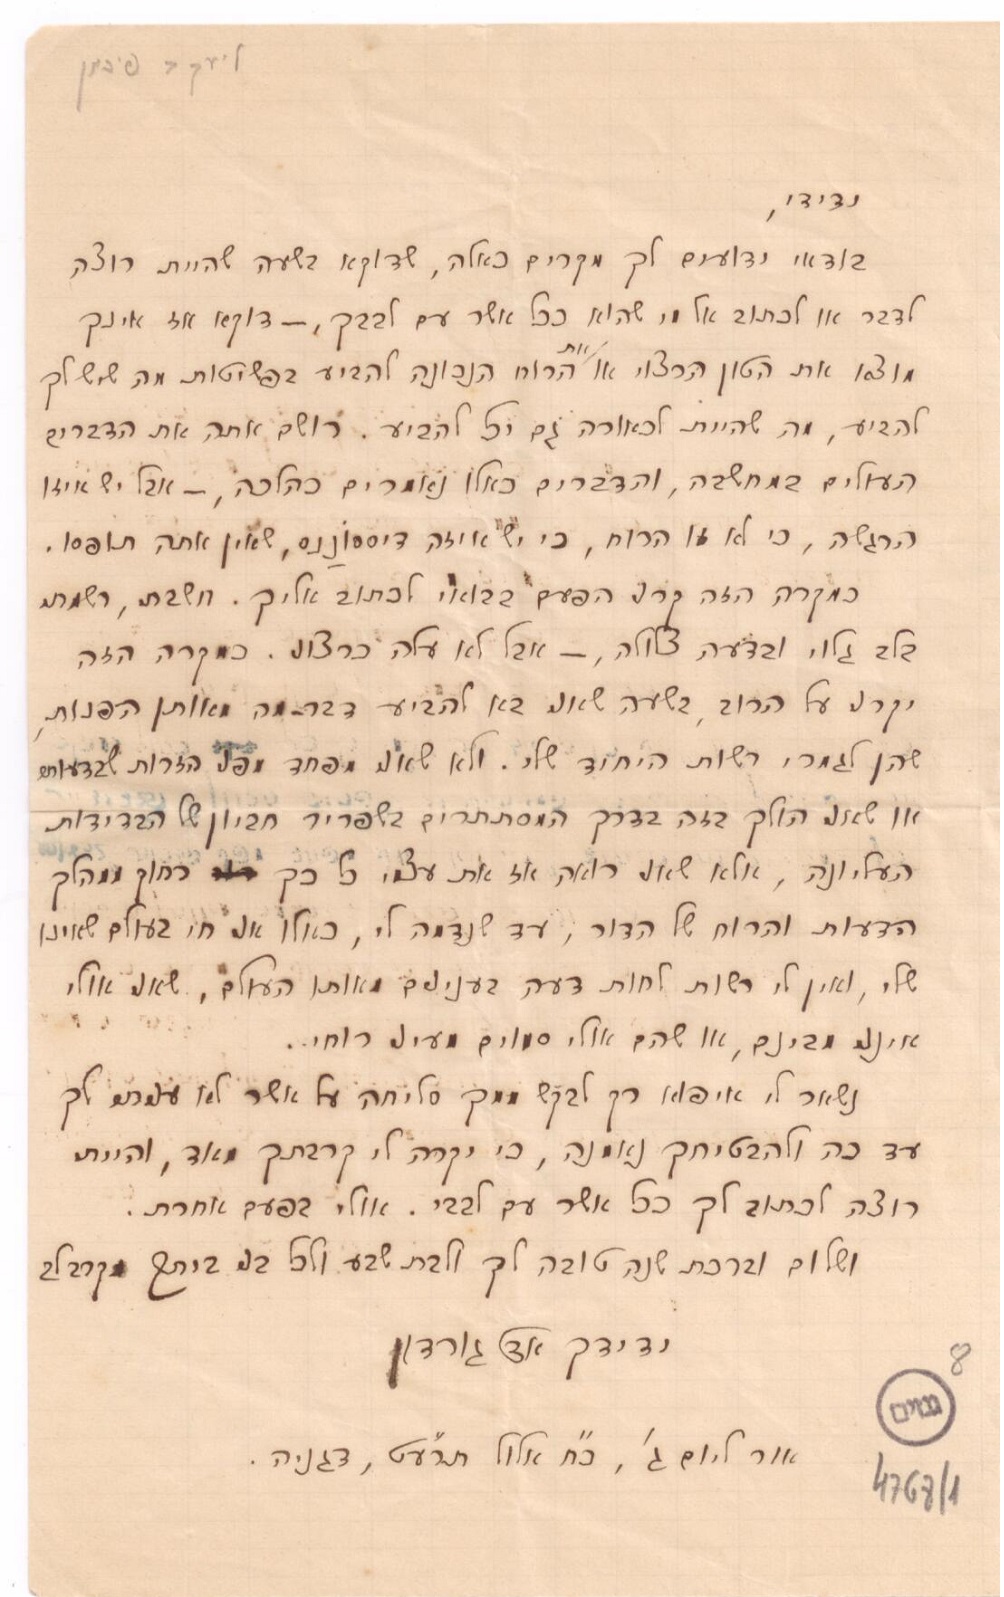 ליעקב פיכמן
ידידי,
בודאי ידועים לך מקרים כאלה, שדוקא בשעה שהיית רוצה
לדבר או לכתוב אל מי שהוא ככל אשר עם לבבך, – דוקא אז אינך
מוצא את הטון הרצוי או את הרוח הנכונה להביע בפשיטות מה שיש לך
להביע, מה שהיית לכאורה גם יכל להביע. רושם אתה את הדברים
העולים במחשבה, והדברים כאלו נאמרים כהלכה, – אבל יש איזו
הרגשה, כי לא זו הרוח, כי יש איזה דיססוננס, שאין אתה תופסו.
כמקרה הזה קרני הפעם בבואי לכתוב אליך. חשבתי, רשמתי
בלב גלוי ובדעה צלולה, – אבל לא עלה כרצוני. כמקרה הזה
יקרני על הרוב, בשעה שאני בא להביע דבר-מה מאותן הפנות,
שהן לגמרי רשות היחיד שלי. ולא שאני מפחד מפני הזרות שבדעותי
או שאני הולך בזה בדרך המסתתרים בשפריר חביון של הבדידות
העליונה, אלא שאני רואה אז את עצמי כל כך רחוק ממהלך
הדעות והרוח של הדור, עד שנדמה לי, כאלו אני חי בעולם שאינו
שלי, ואין לי רשות לחות דעה בענינים מאותו העולם, שאני אולי
אינני מבינם, או שהם אולי סמוים מעיני רוחי..
נשאר לי איפוא רק לבקש ממך סליחה על אשר לא עניתי לך
עד כה ולהבטיחך נאמנה, כי יקרה לי קרבתך מאד, והייתי
רוצה לכתוב לך ככל אשר עם לבבי. אולי בפעם אחרת.
ושלום וברכת שנה טובה לך ולבת שבע ולכל בני ביתך מקרב לב
ידידך אד גורדון
אור ליום ג', כ"ח אלול תרע"ט, דגניה.
8
גנזים
4767/1